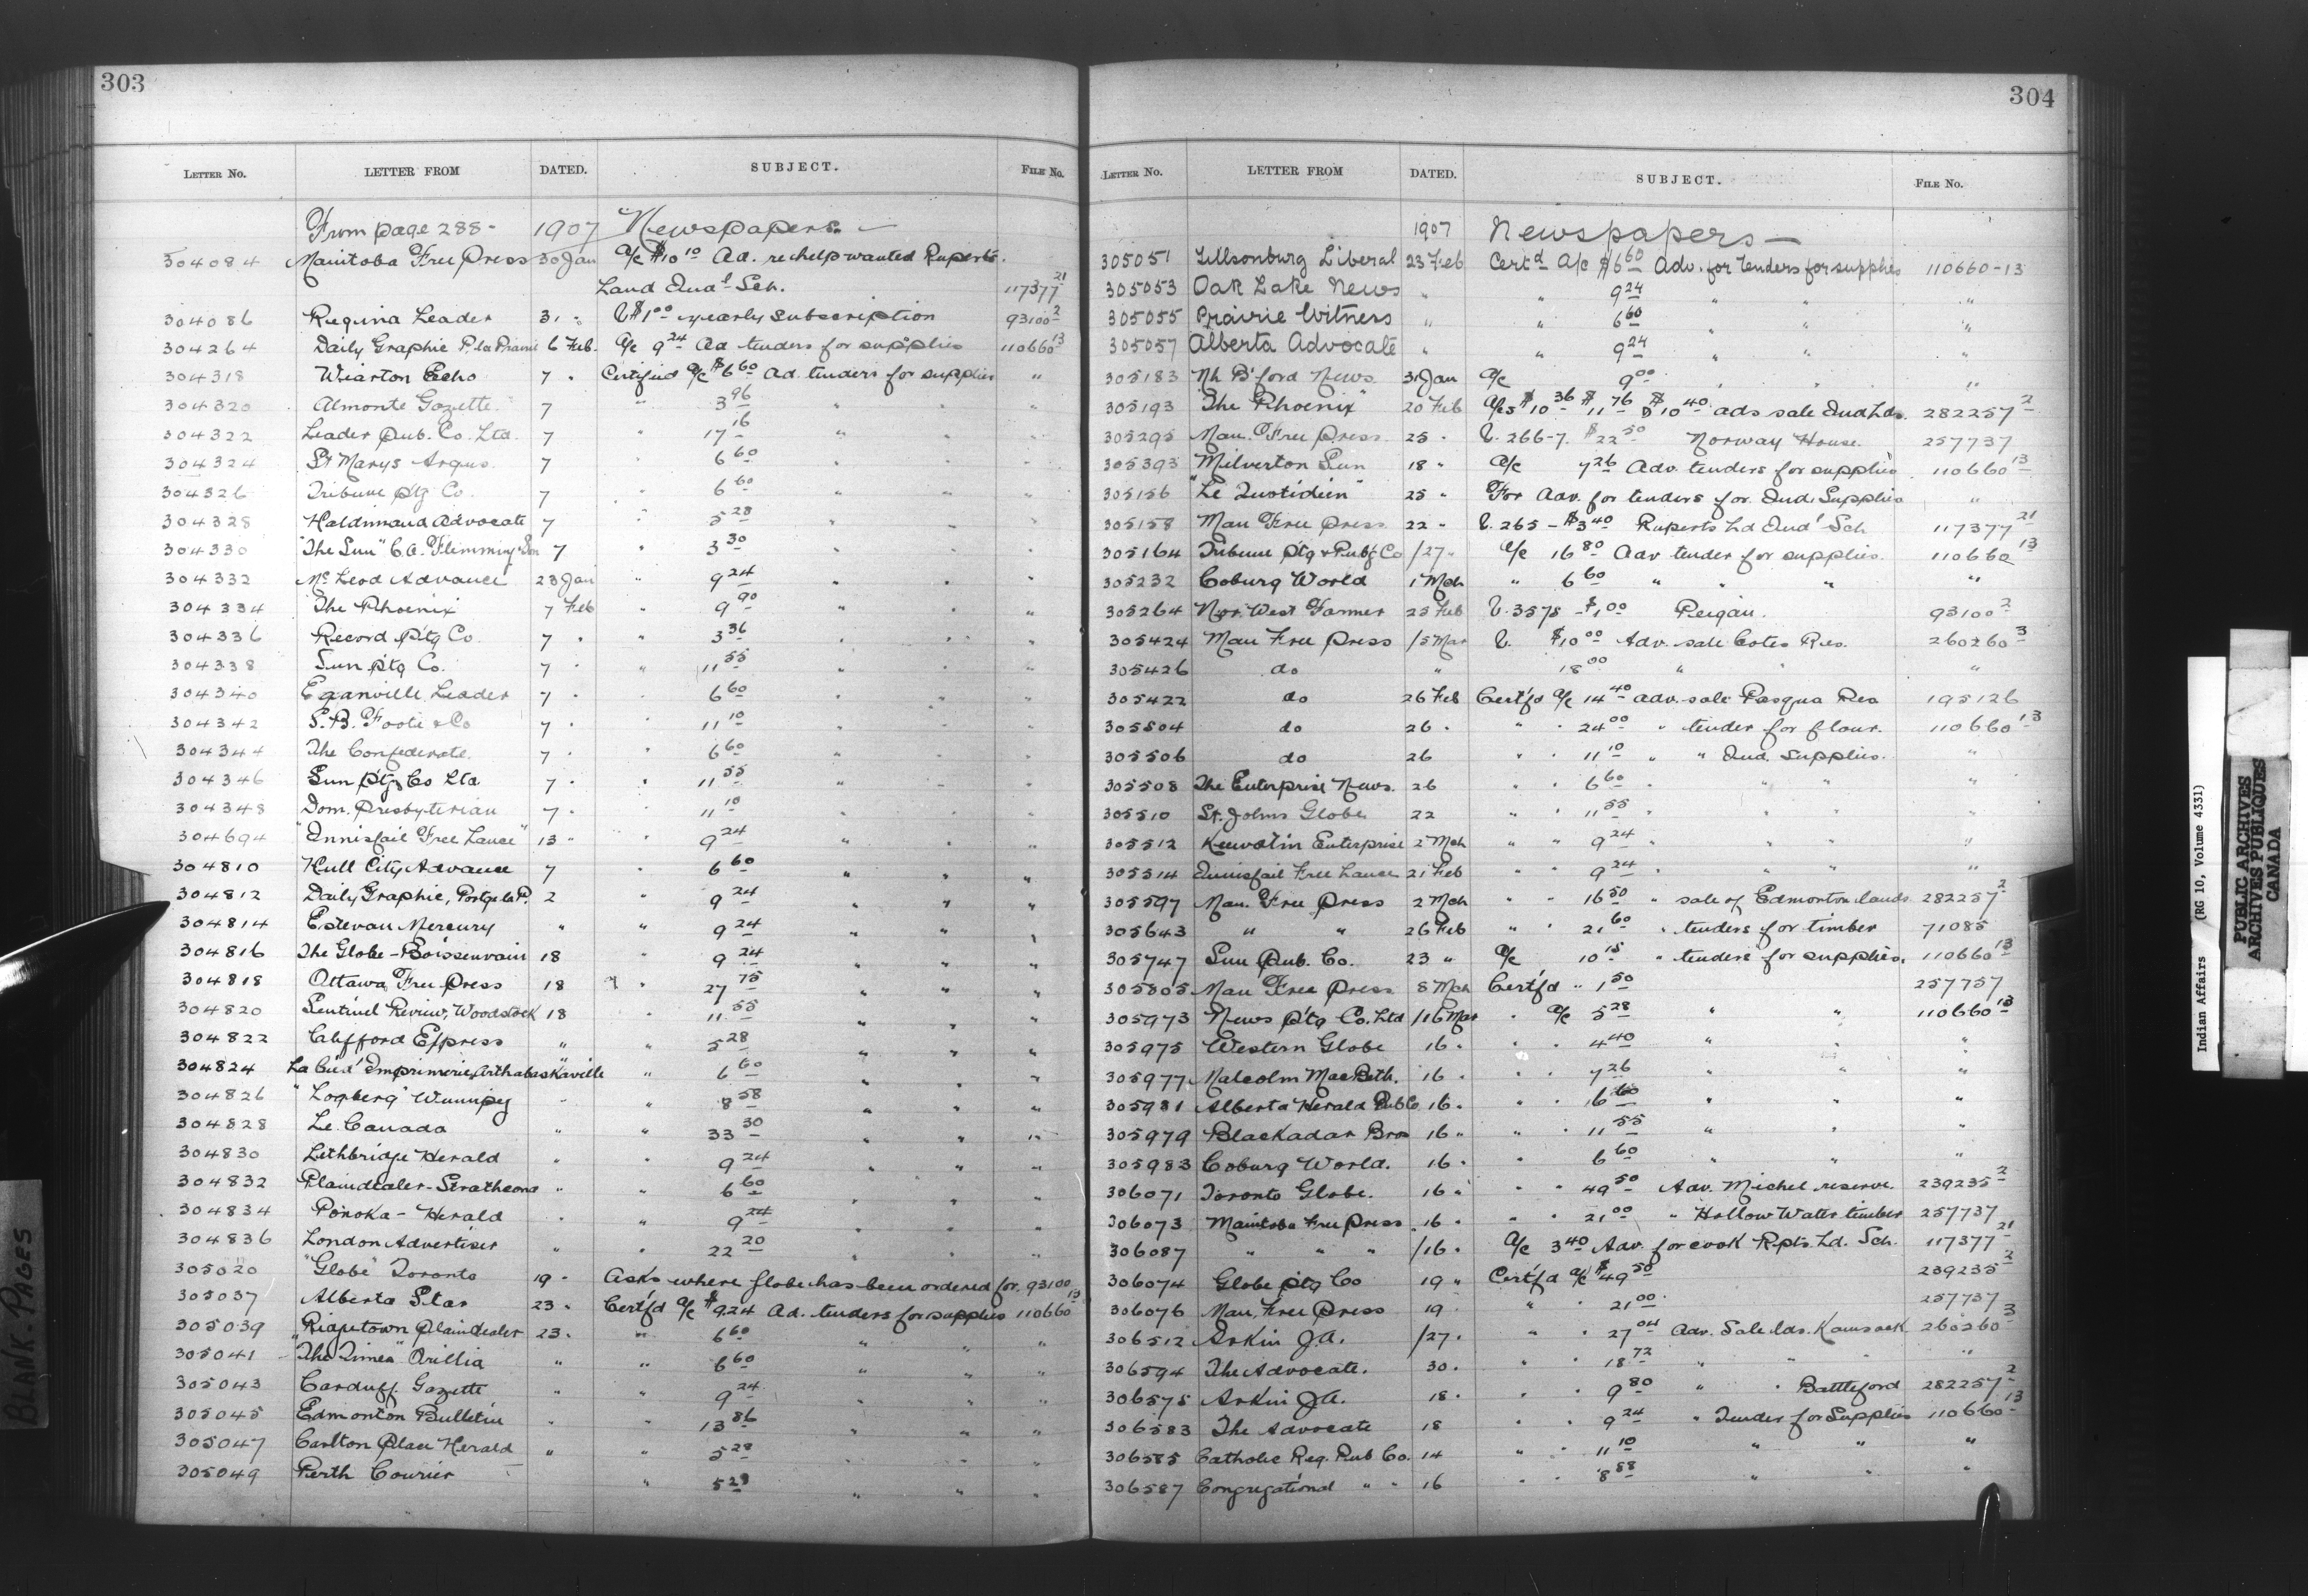 303
LETTER No. LETTER FROM DATED. SUBJECT. FILE No.
From page 288- 1907 Newspapers
304084 Manitoba Free Press 30 Jan a/c $10 10 Ad. re help wanted Ruperts
Land Indl Sch. 117377 21
304086 Regina Leader 31 " $1 00 yearly subscription 93100 2
304264 Daily Graphic P. la Prairie 6 Feb. a/c 9 24 Ad tenders for supplies 110660 13
304318 Wiarton Echo 7 " Certified a/c $6 60 Ad. tenders for supplies "
304320 Almonte Gazette 7 " 3 96 " " "
304322 Leader Pub. Co. Ltd. 7 " 17 16 " " "
304324 St Marys Argus 7 " 6 60 " " "
304326 Tribune Ptg Co. 7 " 6 60 " " "
304328 Haldimand Advocate 7 " 5 28 " " "
304330 "The Sun" C.A. Flimming & Son 7 " 3 30 " " "
304332 McLeod Advance 23 Jan " 9 24 " " "
304334 The Phoenix 7 Feb " 9 90 " " "
304336 Record Ptg Co. 7 " " 3 36 " " "
304338 Sun Ptg Co. 7 " " 11 55 " " "
304340 Eganville Leader 7 " " 6 60 " " "
304342 S.B. Foote & Co 7 " " 11 10 " " "
304344 The Confederate 7 " " 6 60 " " "
304346 Sun Ptg Co Ltd 7 " " 11 55 " " "
304348 Dom. Presbyterian 7 " " 11 10 " " "
304694 "Innisfail Free Lance" 13 " " 9 24 " " "
304810 Hull City Advance 7 " 6 60 " " "
304812 Daily Graphic, Portge la P. 2 " 9 24 " " "
304814 Estevan Mercury " " 9 24 " " "
304816 The Globe - Boissenvain 18 " 9 24 " " "
304818 Ottawa Free Press 18 " 27 75 " " "
304820 Sentinel Review, Woodstock 18 " 11 55 " " "
304822 Clifford Express " " 5 28 " " "
304824 La Cie d'Imprimerie, Arthabaskaville " 6 60 " " "
304826 "Logberg" Winnipeg " " 8 58 " " "
304828 Le Canada " " 33 30 " " "
304830 Lethbridge Herald " " 9 24 " " "
304832 Plaindealer - Strathcona " " 6 60 " " "
304834 Ponoka - Herald " " 9 24 " " "
304836 London Advertiser " " 22 20 " " "
305020 "Globe" Toronto 19 " Asks where Globe has been ordered for. 93100
305037 Alberta Star 23 " Certf'd a/c $9.24 Ad. tenders for supplies 110660 13
305039 Ridgetown Plaindealer 23 " " 6 60 " " "
305041 "The Times" Orillia " " 6 60 " " "
305043 Carduff Gazette " " 9 24 " " "
305045 Edmonton Bulletin " " 13 86 " " "
305047 Carlton Place Herald " " 5 28 " " "
305049 Perth Courier " 5 28 " " "
304
LETTER No. LETTER FROM DATED. SUBJECT. FILE No.
1907 Newspapers
305051 Tillsonburg Liberal 23 Feb Certd a/c $6 60 Adv. for Tenders for supplies 110660-13
305053 Oak Lake News " " 9 24 " " "
305055 Prairie Witness " " 6 60 " " "
305057 Alberta Advocate " " 9 24 " " "
305183 Nh B'ford News 31 Jan a/c 9 00 " " "
305193 The Phoenix 20 Feb a/cs $10 36 $11 76 $10 40 ads sale Ind Lds. 282257 2
305295 Man. Free Press 25 " V. 266-7. $22 50 Norway House. 257737
305393 Milverton Sun 18 " a/c 7 26 Adv. tenders for supplies 110660 13
305156 "Le Quotidien" 25 " For Adv. for tenders for Ind. Supplies "
305158 Man Free Press 22 " V. 265 - $3 40 Ruperts Ld Indl Sch 117377 21
305164 Tribune Ptg & Pub'g Co /27 " a/c 16 80 Adv tender for supplies. 110660 13
305232 Coburg World 1 Mch " 6 60 " " " "
305264 Nor. West Farmer 25 Feb V. 3578 - $1 00 Peigan. 93100 2
305424 Man Free Press /5 Mar V. $10 00 Adv. sale Cotes Res. 260260 3
305426 do " 18 00 " " "
305422 do 26 Feb Certf'd a/c 14 40 adv. sale Pasqua Res 195126
305504 do 26 " " " 24 00 " tender for flour. 110660 13
305506 do 26 " " 11 10 " " Ind. Supplies. "
305508 The Enterprise News. 26 " " 6 60 " " " "
305510 St. Johns Globe 22 " " 11 55 " " " "
305512 Keewatin Enterprise 2 Mch " " 9 24 " " " "
305514 Innisfail Free Lance 21 Feb " " 9 24 " " " "
305597 Man. Free Press 2 Mch " " 16 50 " sale of Edmonton lands 282257 2
305643 " " 26 Feb " " 21 60 " tenders for timber 71085
305747 Sun Pub. Co. 23 " a/c 10 15 " tenders for supplies. 110660 13
305805 Man Free Press 8 Mch Certf'd " 1 50 257757
305973 News Ptg Co. Ltd /16 Mar " a/c 5 28 " " 110660 13
305975 Western Globe 16 " " " 4 40 " " "
305977 Malcolm MacBeth. 16 " " " 7 26 " " "
305981 Alberta Herald Pub Co 16 " " " 16 60 " " "
305979 Blackadar Bros 16 " " " 11 55 " " "
305983 Coburg World. 16 " " 6 60 " " "
306071 Toronto Globe. 16 " " " 49 50 Adv. Michel reserve. 239235 2
306073 Manitoba Free Press 16 " " " 21 00 " Hollow Water timber 257737
306087 " " " /16 " a/c 3 40 Adv. for cook Rpts. Ld. Sch. 117377 21
306074 Globe Ptg Co 19 " Certf'd a/c $49 50 239235 2
306076 Man. Free Press 19 " " " 21 00 257737
306512 Askin J.A. /27 " " " 27 04 Adv. Sale lds. Kamsack 260260 3
306594 The Advocate. 30 " " " 18 72 " " " "
306575 Askin J.A. 18 " " " 9 80 " " Battleford 282257 2
306583 The Advocate 18 " " 9 24 " Tender for Supplies 110660 13
306585 Catholic Reg. Pub Co. 14 " " 11 10 " " "
306587 Congregational " " 16 " " 8 88 " " "
Indian Affairs (RG 10, Volume 4331)
PUBLIC ARCHIVES
ARCHIVES PUBLIQUES
CANADA
BLANK PAGES